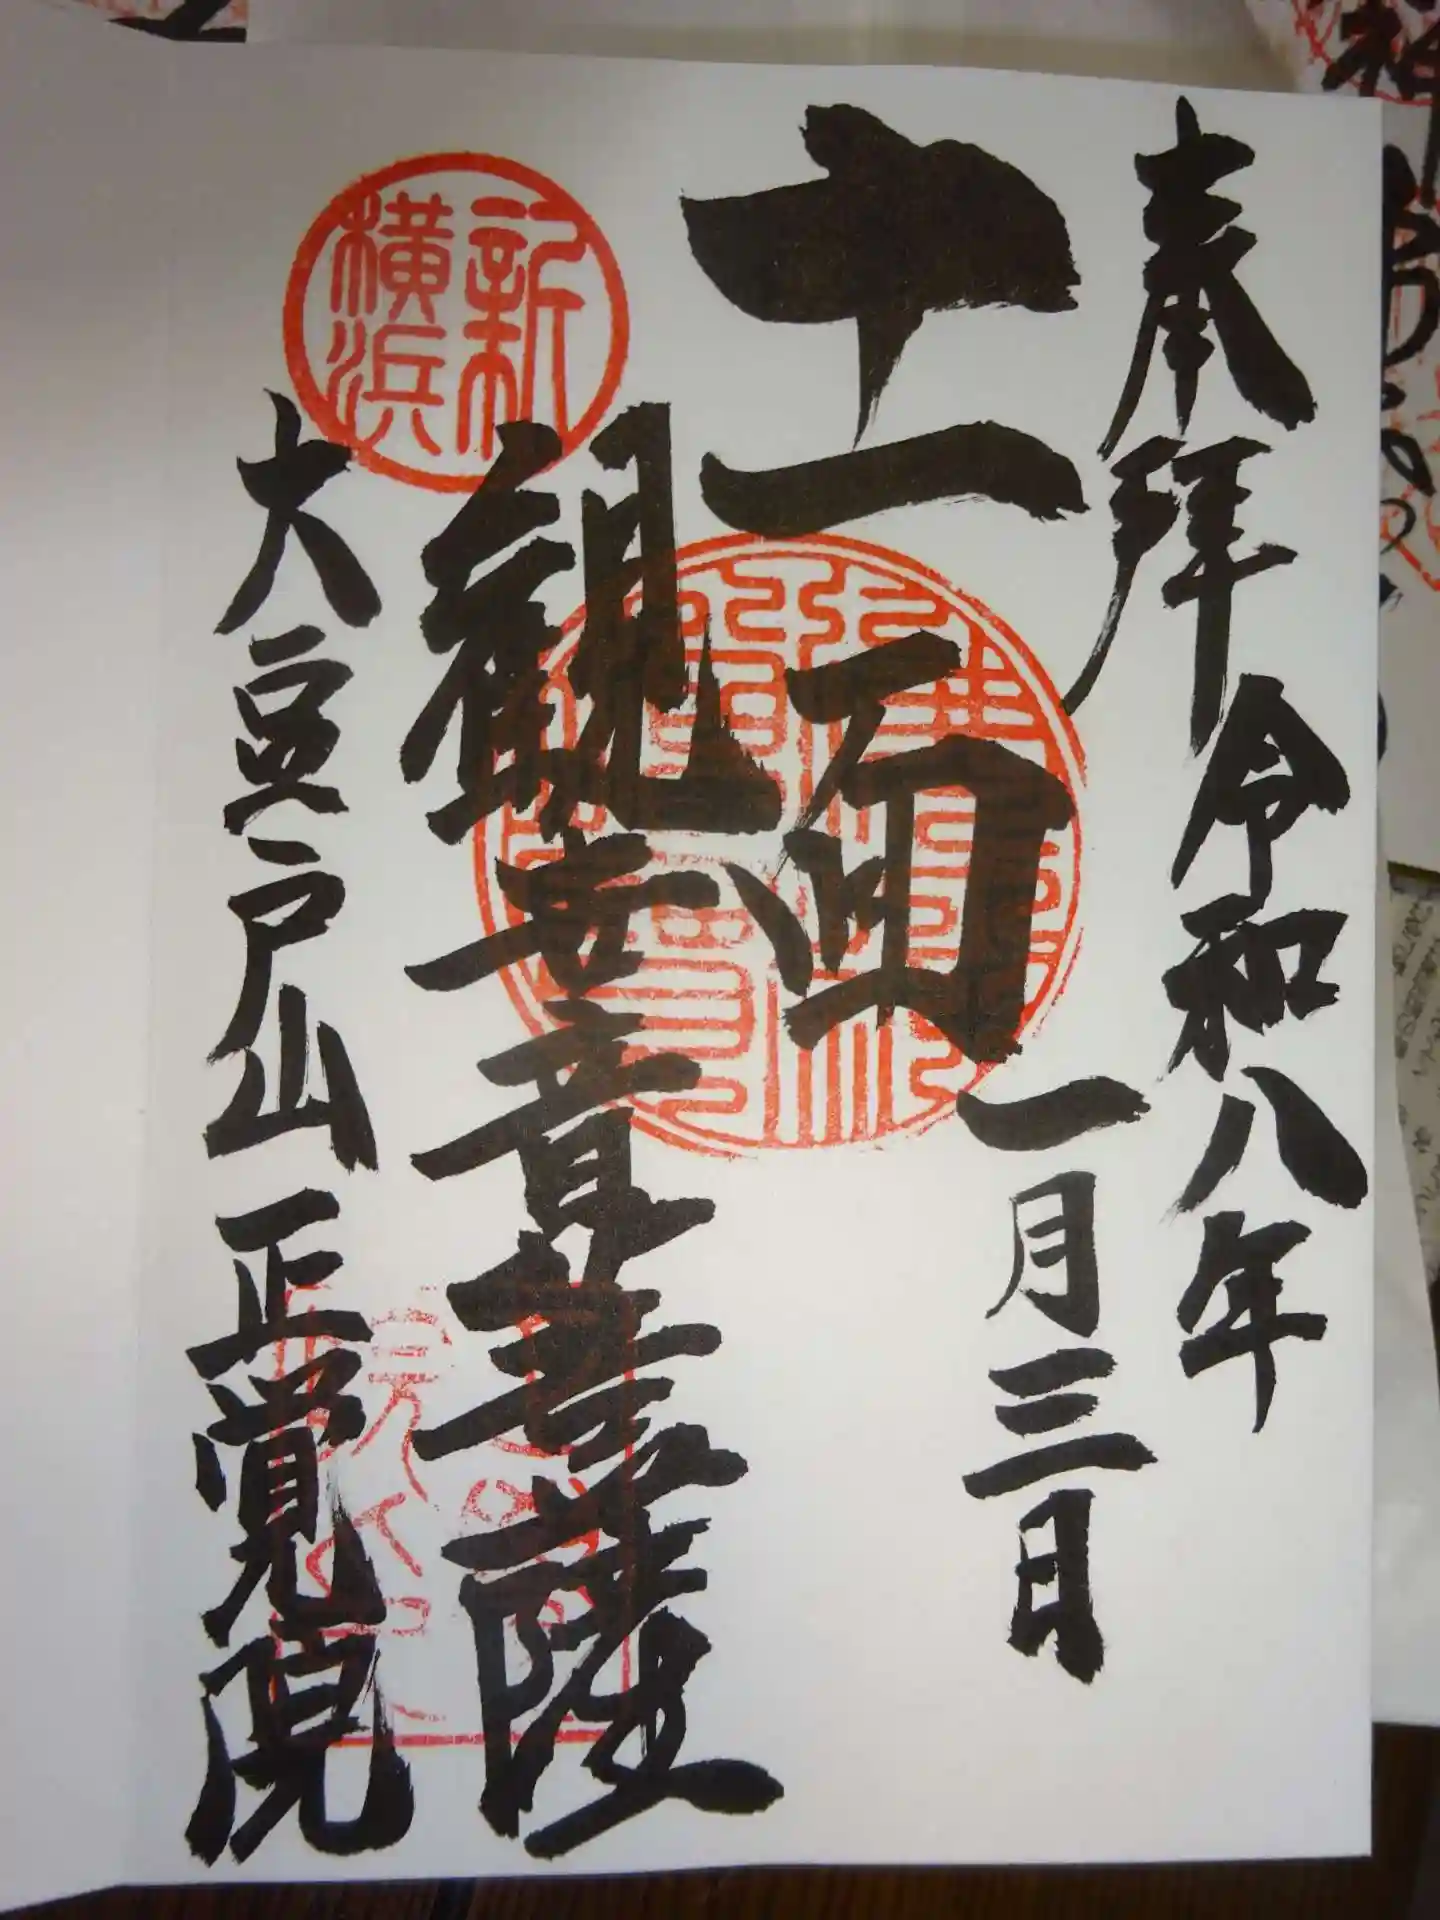 奉拜 令和八年
一月三日
十一面
観世音菩薩
新横浜
大豆戸山 正覚院